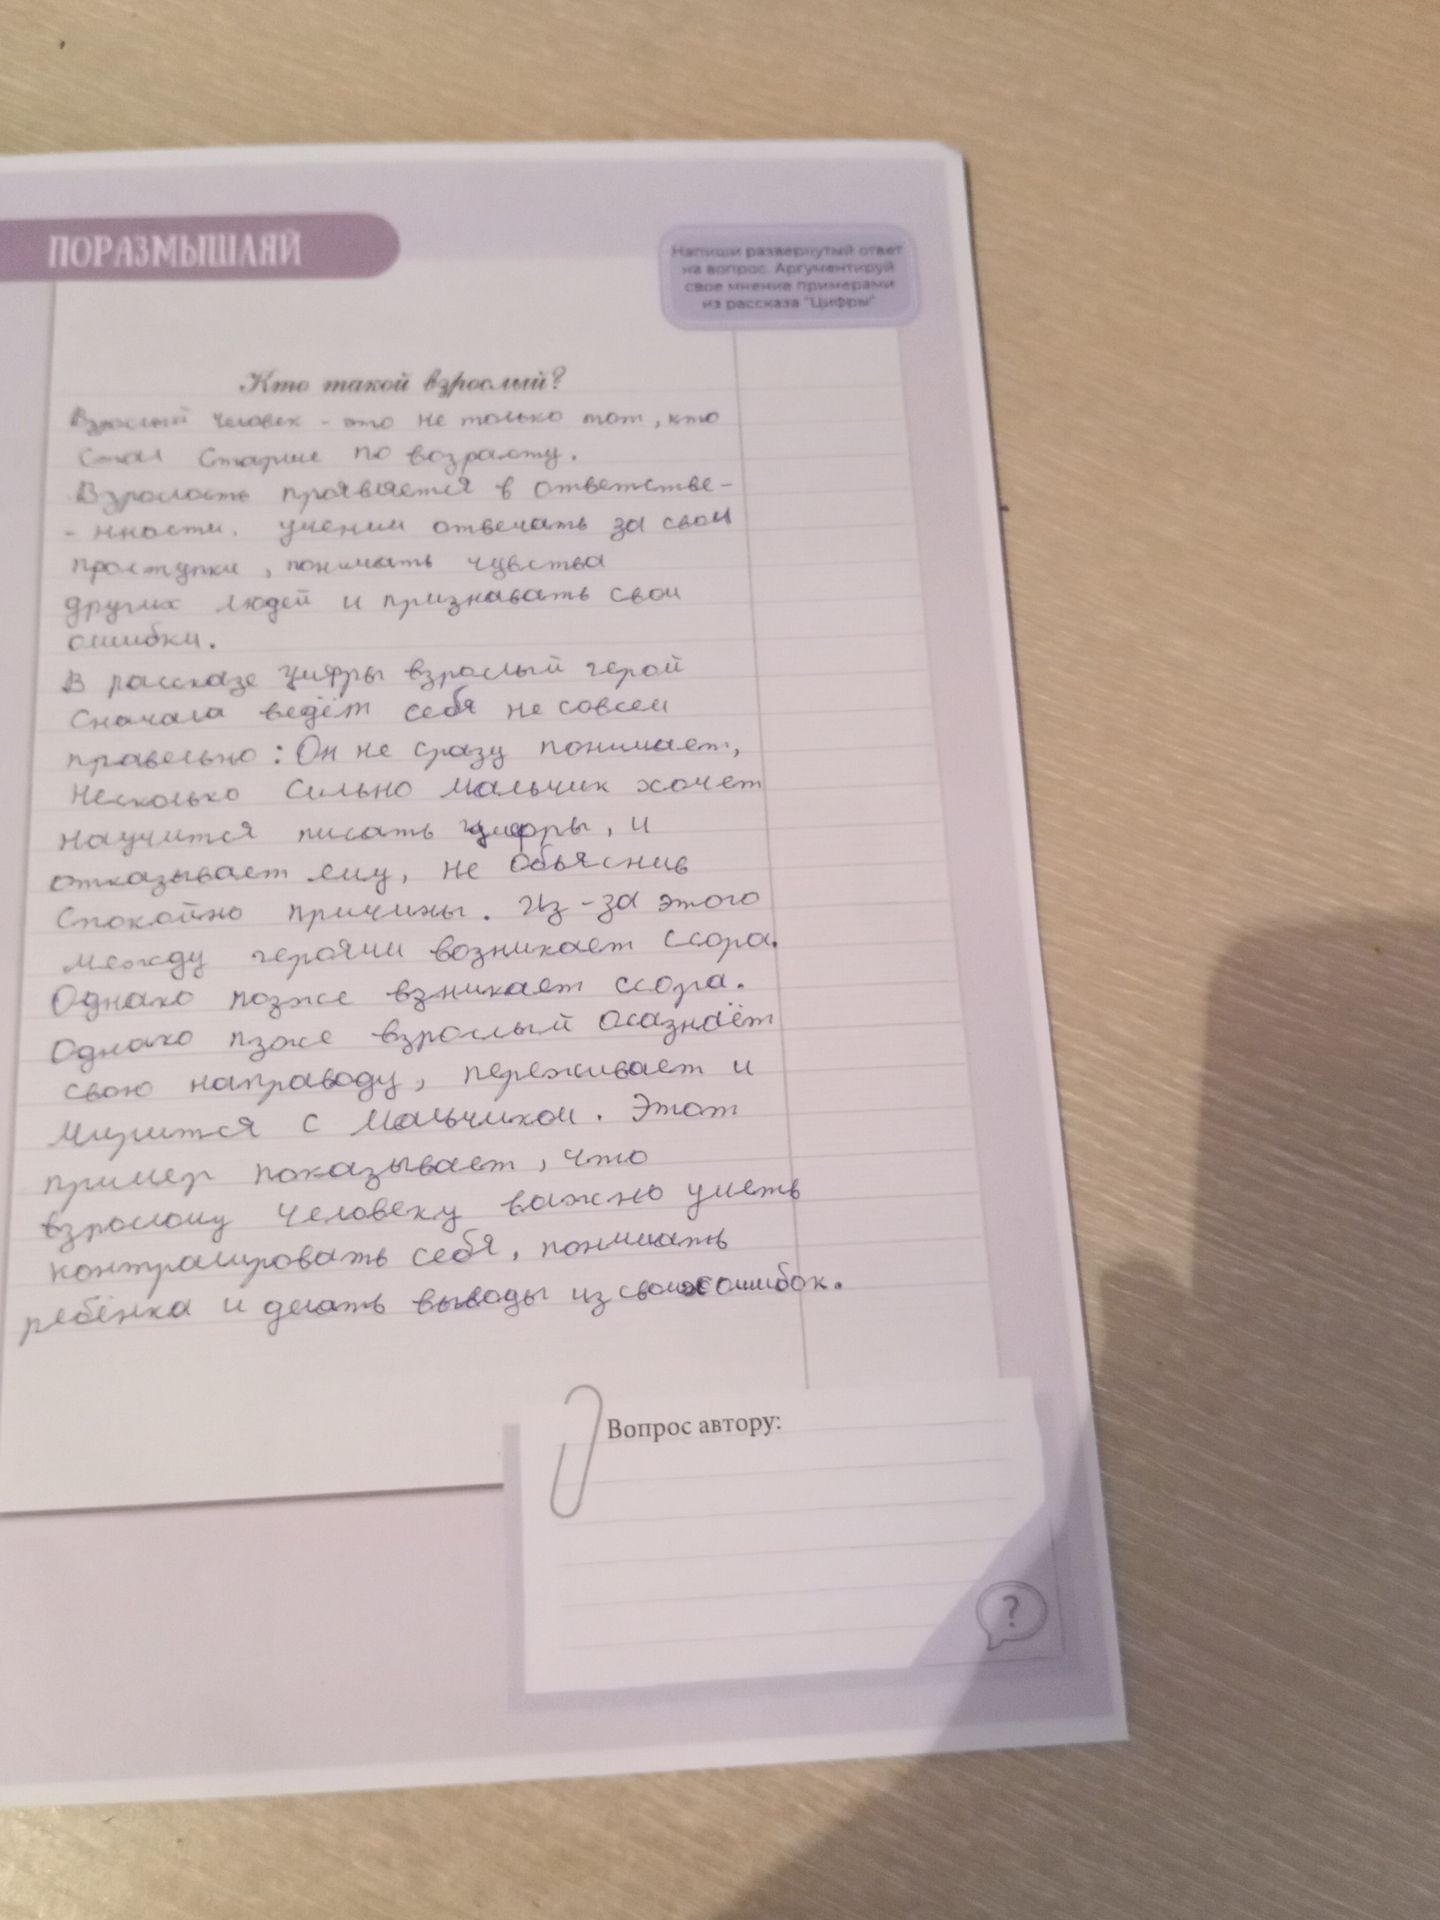 ПОРАЗМЫШЛЯЙ
Напиши развернутый ответ
на вопрос. Аргументируй
свое мнение примерами
из рассказа "Цифры"
Кто такой взрослый?
Взрослый человек - это не только тот, кто
стал старше по возрасту.
Взрослость проявляется в ответстве-
- нности. умении отвечать за свои
проступки, понимать чувства
других людей и признавать свои
ошибки.
В рассказе цифры взрослый герой
сначала ведёт себя не совсем
правельно: Он не сразу понимает,
несколько сильно мальчик хочет
научится писать цифры, и
отказывает ему, не обьяснив
спокойно причины. Из-за этого
между героями возникает ссора.
Однако позже взникает ссора.
Однако пзже взрослый осазнаёт
свою направоду, переживает и
мирится с мальчиком. Этот
пример показывает, что
взрослому человеку важно уметь
контралировать себя, понимать
ребёнка и делать выводы из своих ошибок.
Вопрос автору:
?